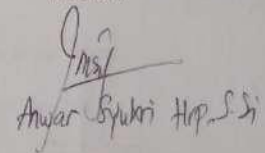 Anwar Syukri Hrp, S.Si